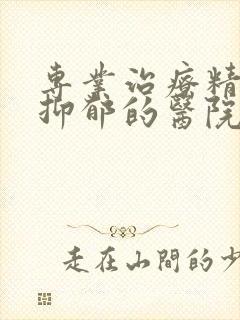 專業治療精
抑郁的醫院
走在山間的少